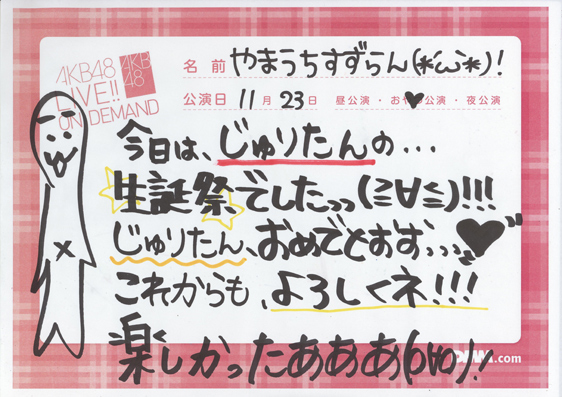 AKB48
LIVE!!
ON DEMAND
AKB
48
名前 やまうちすずらん(*´ω`*)!
公演日 11月23日 昼公演・おやつ公演・夜公演
今日は、じゅりたんの...
生誕祭でしたっっ(≧∀≦)!!!
じゅりたん、おめでとおお...♥
これからも、よろしくネ!!!
楽しかったあああ(p∀q)!
.com